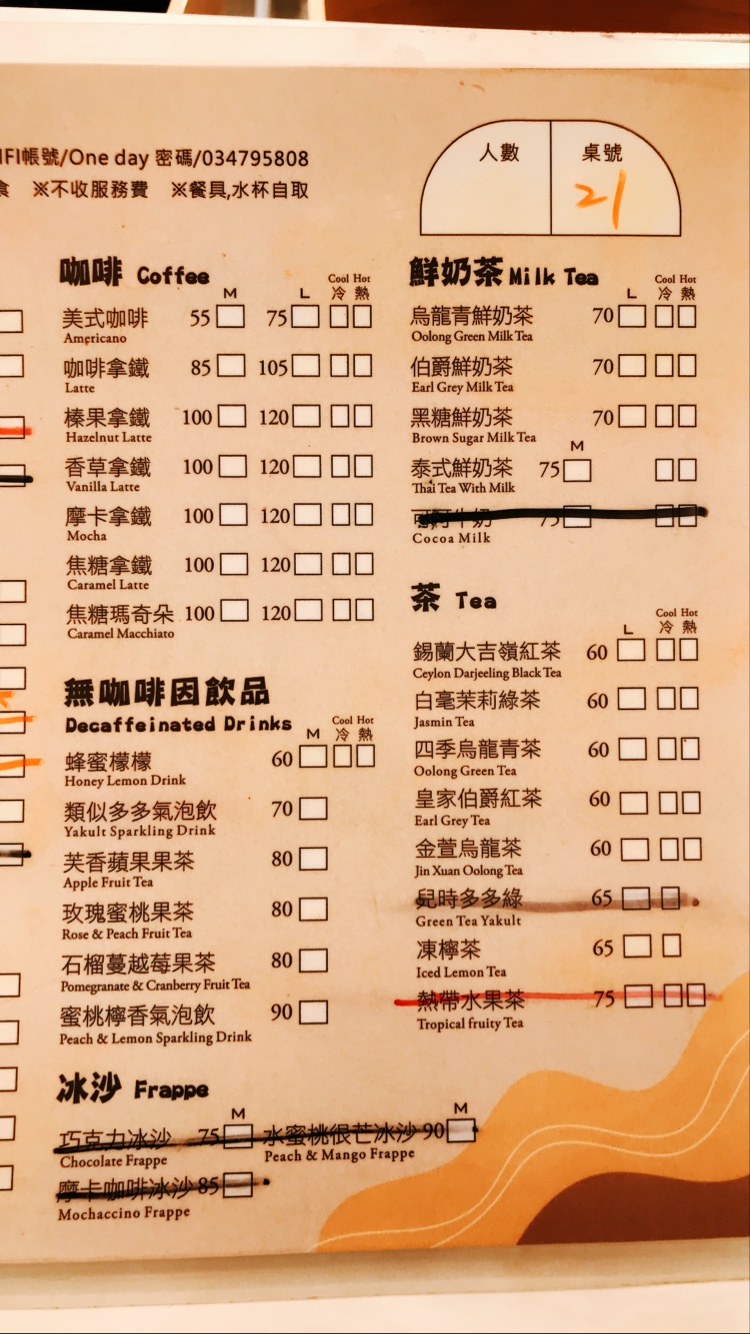 IFI帳號/One day 密碼/034795808
食 ※不收服務費 ※餐具,水杯自取
人數 桌號
21
咖啡 Coffee
M L Cool Hot
冷 熱
美式咖啡 55 75
Americano
咖啡拿鐵 85 105
Latte
榛果拿鐵 100 120
Hazelnut Latte
香草拿鐵 100 120
Vanilla Latte
摩卡拿鐵 100 120
Mocha
焦糖拿鐵 100 120
Caramel Latte
焦糖瑪奇朵 100 120
Caramel Macchiato
無咖啡因飲品
Decaffeinated Drinks M Cool Hot
冷 熱
蜂蜜檬檬 60
Honey Lemon Drink
類似多多氣泡飲 70
Yakult Sparkling Drink
芙香蘋果果茶 80
Apple Fruit Tea
玫瑰蜜桃果茶 80
Rose & Peach Fruit Tea
石榴蔓越莓果茶 80
Pomegranate & Cranberry Fruit Tea
蜜桃檸香氣泡飲 90
Peach & Lemon Sparkling Drink
冰沙 Frappe
M M
巧克力冰沙 75 水蜜桃很芒冰沙 90
Chocolate Frappe Peach & Mango Frappe
摩卡咖啡冰沙 85
Mochaccino Frappe
鮮奶茶 Milk Tea
L Cool Hot
冷 熱
烏龍青鮮奶茶 70
Oolong Green Milk Tea
伯爵鮮奶茶 70
Earl Grey Milk Tea
黑糖鮮奶茶 70
Brown Sugar Milk Tea
M
泰式鮮奶茶 75
Thai Tea With Milk
可可牛奶 75
Cocoa Milk
茶 Tea
L Cool Hot
冷 熱
錫蘭大吉嶺紅茶 60
Ceylon Darjeeling Black Tea
白毫茉莉綠茶 60
Jasmin Tea
四季烏龍青茶 60
Oolong Green Tea
皇家伯爵紅茶 60
Earl Grey Tea
金萱烏龍茶 60
Jin Xuan Oolong Tea
兒時多多綠 65
Green Tea Yakult
凍檸茶 65
Iced Lemon Tea
熱帶水果茶 75
Tropical fruity Tea